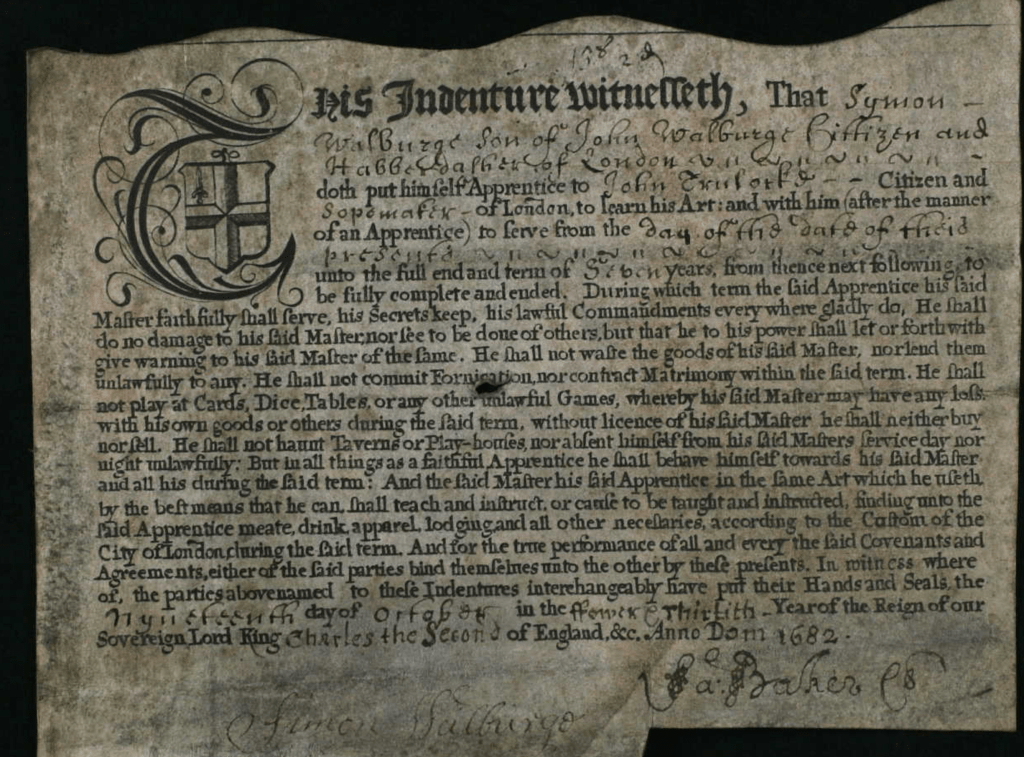 This Indenture witnesseth, That Symon
Walburge Son of John Walburge Cittizen and
Habberdasher of London
doth put himself Apprentice to John Trulocke - - Citizen and
Sopemaker - of London, to learn his Art: and with him (after the manner
of an Apprentice) to serve from the day of the date of theis
presents
unto the full end and term of Seven years, from thence next following, to
be fully complete and ended. During which term the said Apprentice his said
Master faithfully shall serve, his Secrets keep, his lawful Commandments every where gladly do, He shall
do no damage to his said Master, nor see to be done of others, but that he to his power shall let or forthwith
give warning to his said Master of the same. He shall not waste the goods of his said Master, nor lend them
unlawfully to any. He shall not commit Fornication, nor contract Matrimony within the said term. He shall
not play at Cards, Dice, Tables, or any other unlawful Games, whereby his said Master may have any loss.
with his own goods or others during the said term, without licence of his said Master he shall neither buy
nor sell. He shall not haunt Taverns or Play-houses, nor absent himself from his said Masters service day nor
night unlawfully: But in all things as a faithful Apprentice he shall behave himself towards his said Master
and all his during the said term: And the said Master his said Apprentice in the same Art which he useth,
by the best means that he can, shall teach and instruct, or cause to be taught and instructed, finding unto the
said Apprentice meate, drink, apparel, lodging, and all other necessaries, according to the Custom of the
City of London, during the said term. And for the true performance of all and every the said Covenants and
Agreements, either of the said parties bind themselves unto the other by these presents. In witness where
of, the parties abovenamed to these Indentures interchangeably have put their Hands and Seals, the
Nyneteenth day of October in the ffower & Thirtith - Year of the Reign of our
Sovereign Lord King Charles the Second of England, &c. Anno Dom 1682.
Baker
Simon Walburge